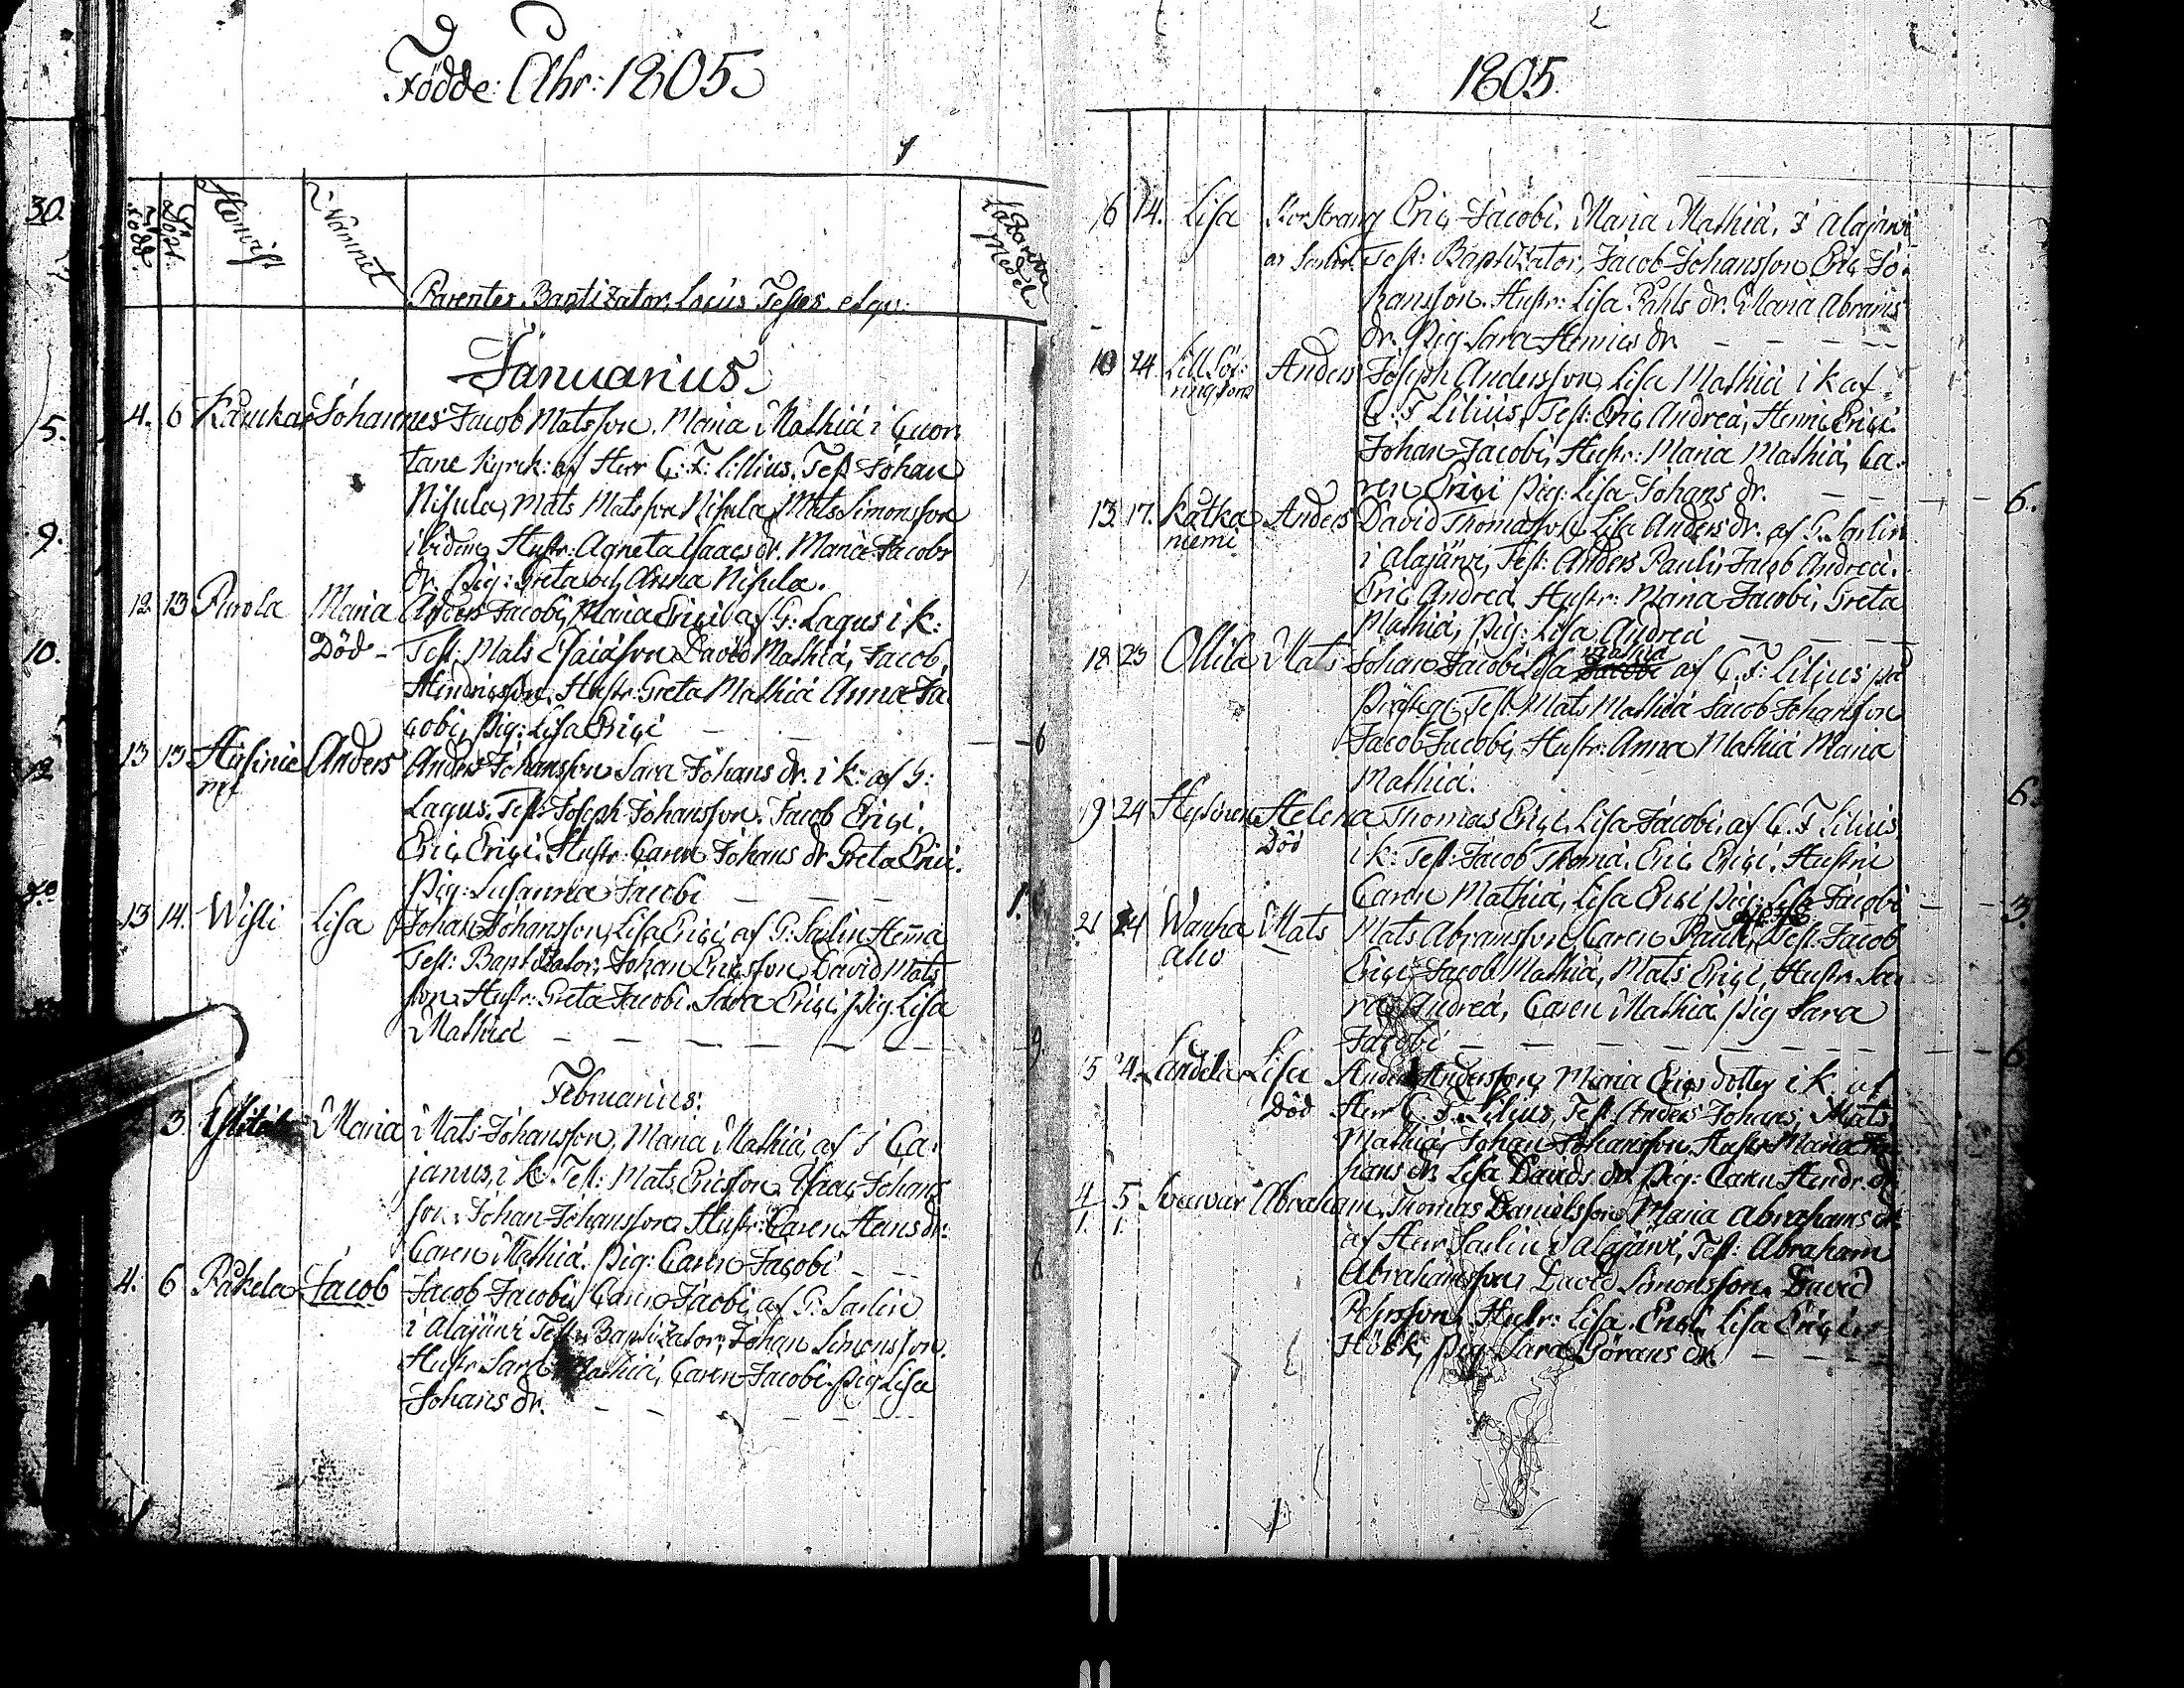 Födde: Ahr: 1805.
1
Född
Döpt
Hemvist
Namnet
Parentes. Baptizator, Locus Testes etqv:
Lazarett
Januarius
4. 6 Kaucka Johannes Jacob Matsson. Maria Mathiæ i Quor
tane Kyrck: af Herr C: F: Lillius. Test Johan
Nisula, Mats Matsson Nisula, Mats Simonsson
ibidem, Hustr: Agneta Isaacs dr. Maria Jacobs
dr. Pig: Greta och Anna Nisula.
12. 13 Purola Maria Anders Jacobi, Maria Erici af G: Lagus i K:
Död - Test: Mats Esaiæson David Mathiæ, Jacob
Hendricsson. Hustr: Greta Mathiæ Anna Ja
cobi, Pig: Lisa Erici 6
13 13 Anders Anders Johansson Sara Johans dr. i K: af G:
Lagus. Test: Joseph Johansson. Jacob Erici.
Eric Erici. Hustr: Caren Johans dr Greta Erici.
Pig: Susanna Jacobi
13 14. Wisti Lisa Johan Johansson, Lisa Erici, af G: Sarlin Hema
Test: Baptizator, Johan Ericsson David Mats
son. Hustr: Greta Jacobi. Sara Erici, Pig. Lisa
Mathiæ 9.
Februarius:
3. Maria Mats Johansson, Maria Mathiæ, af J Ca
janus, i K. Test: Mats Ericsson. Isaac Johans
son. Johan Johansson, Hustr: Caren Hans dr:
Caren Mathiæ. Pig: Caren Jacobi 6
4. 6 Påkela Jacob Jacob Jacobi, Caren Jacobi, af G: Sarlin
i Alajärvi Test: Baptizator, Johan Simonsson.
Hustr Sara Mathiæ, Caren Jacobi. Pig Lisa
Johans dr.
1805.
6 14. Lisa Eric Jacobi. Maria Mathiæ. i Alajärvi
af Sarlin. Test: Baptizator, Jacob Johansson Eric Jo
hansson. Hustr: Lisa Påhls dr. Maria Abrams
dr. Pig Sara Henrics dr.
10 24 Anders Joseph Andersson, Lisa Mathiæ i K af
C: F Lilius, Test: Eric Andreæ, Henric Erici.
Johan Jacobi, Hustr: Maria Mathiæ, Ca
ren Erici Pig: Lisa Johans dr. 6.
13. 17. Kåtka Anders David Thomasson, Lisa Anders dr. af G. Sarlin
niemi i Alajärvi, Test: Anders Pauli, Jacob Andreæ.
Eric Andreæ, Hustr: Maria Jacobi, Greta
Mathiæ, Pig: Lisa Andreæ
18. 23 Ollila Mats Johan Jacobi Lisa Mathiæ af C: F: Lilius på
Test. Mats Mathiæ Jacob Johansson
Jacob Jacobi, Hustr: Anna Mathiæ Maria
Mathiæ. 6.
19 24 Helena Thomas Erici, Lisa Jacobi, af C. F Lilius
Död i K: Test: Jacob Thomæ. Eric Erici. Hustru
Caren Mathiæ, Lisa Erici Pig: Lisa Jacobi 3.
21 24 Wanha Mats Mats Abramsson, Caren Pauli, Test: Jacob
aho Erici Jacob Mathiæ, Mats Erici, Hustr. Sa
ra Andreæ, Caren Mathiæ Pig Sara
Jacobi 6
4. Landela Lisa Anders Andersson, Maria Erics dotter i K af
Död Herr C. F. Lilius, Test: Anders Johans, Mats
Mathiæ, Johan Johansson. Hustr: Maria Jo
hans dr. Lisa Davids dr. Pig: Caren Hendr. dr
4 5 Abraham Thomas Danielsson, Maria Abrahams dr.
1. 1. af Herr Sarlin i Alajärvi, Test: Abraham
Abrahamsson, David Simonsson. David
Pehrsson, Hustr: Lisa Erici. Lisa Erici
Höök, Pig: Sara Görans dr.